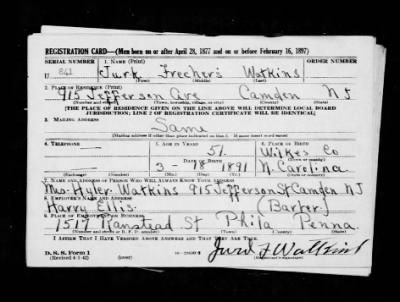 REGISTRATION CARD—(Men born on or after April 28, 1877 and on or before February 16, 1897)
SERIAL NUMBER 1. NAME (Print) ORDER NUMBER
U Watkins
(First) (Middle) (Last)
2. PLACE OF RESIDENCE (Print)
915 Jefferson Ave Camden N J
(Number and street) (Town, township, village, or city) (County) (State)
[THE PLACE OF RESIDENCE GIVEN ON THE LINE ABOVE WILL DETERMINE LOCAL BOARD
JURISDICTION; LINE 2 OF REGISTRATION CERTIFICATE WILL BE IDENTICAL]
3. MAILING ADDRESS
Same
(Mailing address if other than place indicated on line 2. If same insert word same)
4. TELEPHONE 5. AGE IN YEARS 6. PLACE OF BIRTH
51 Wilkes Co
DATE OF BIRTH
3-18 1891 N. Carolina
7. NAME AND ADDRESS OF PERSON WHO WILL ALWAYS KNOW YOUR ADDRESS
Mrs. Hyler Watkins 915 Jefferson St Camden N J
8. EMPLOYER'S NAME AND ADDRESS
Harry Ellis (Barber)
9. PLACE OF EMPLOYMENT OR BUSINESS
Ranstead St Phila Penna
(Number and street or R. F. D. number) (Town) (County) (State)
I AFFIRM THAT I HAVE VERIFIED ABOVE ANSWERS AND THAT THEY ARE TRUE.
D. S. S. Form 1
(Revised 4-1-42)